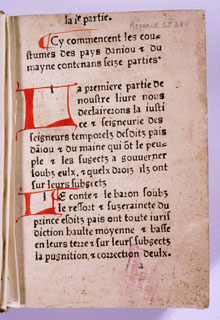 la je partie.
Réserve
¶Cy commencent les cou-
stumes des pays daniou & du
mayne contenans seize parties
La premiere partie de
noustre liure nous
declairerons la iusti
ce & seigneurie des
seigneurs temporelz desdits pais
dãiou & du maine qui õt le peu-
ple & les sugects a gouuerner
soubz eulx, & quelx droiz ilz ont
sur leurs subgects
Le conte & le baron soubz
le ressort & suzeraineté du
prince esdits pais ont toute iuris
diction haulte moyenne & basse
en leurs terre & sur leurs subgects
la pugnition, & correction deulx.